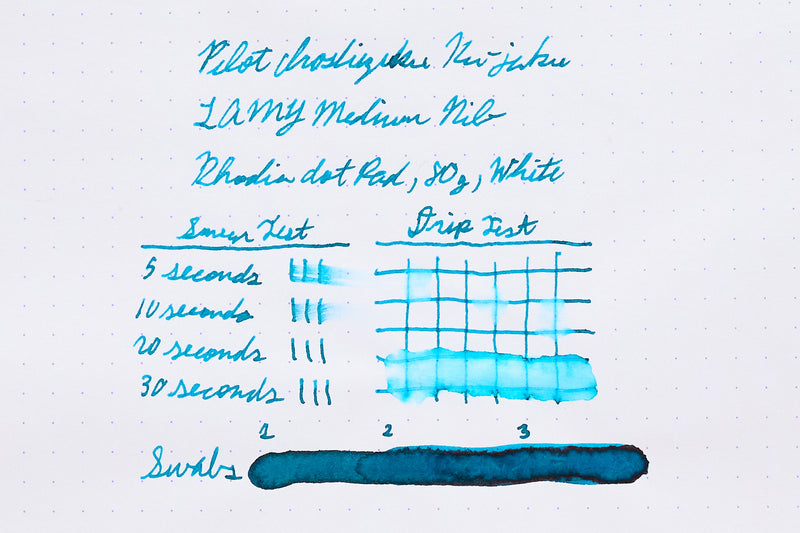 Pilot Iroshizuku Ku-jaku
LAMY Medium Nib
Rhodia dot Pad, 80g, White
Smear Test
Drip Test
5 seconds
10 seconds
20 seconds
30 seconds
1 2 3
Swabs